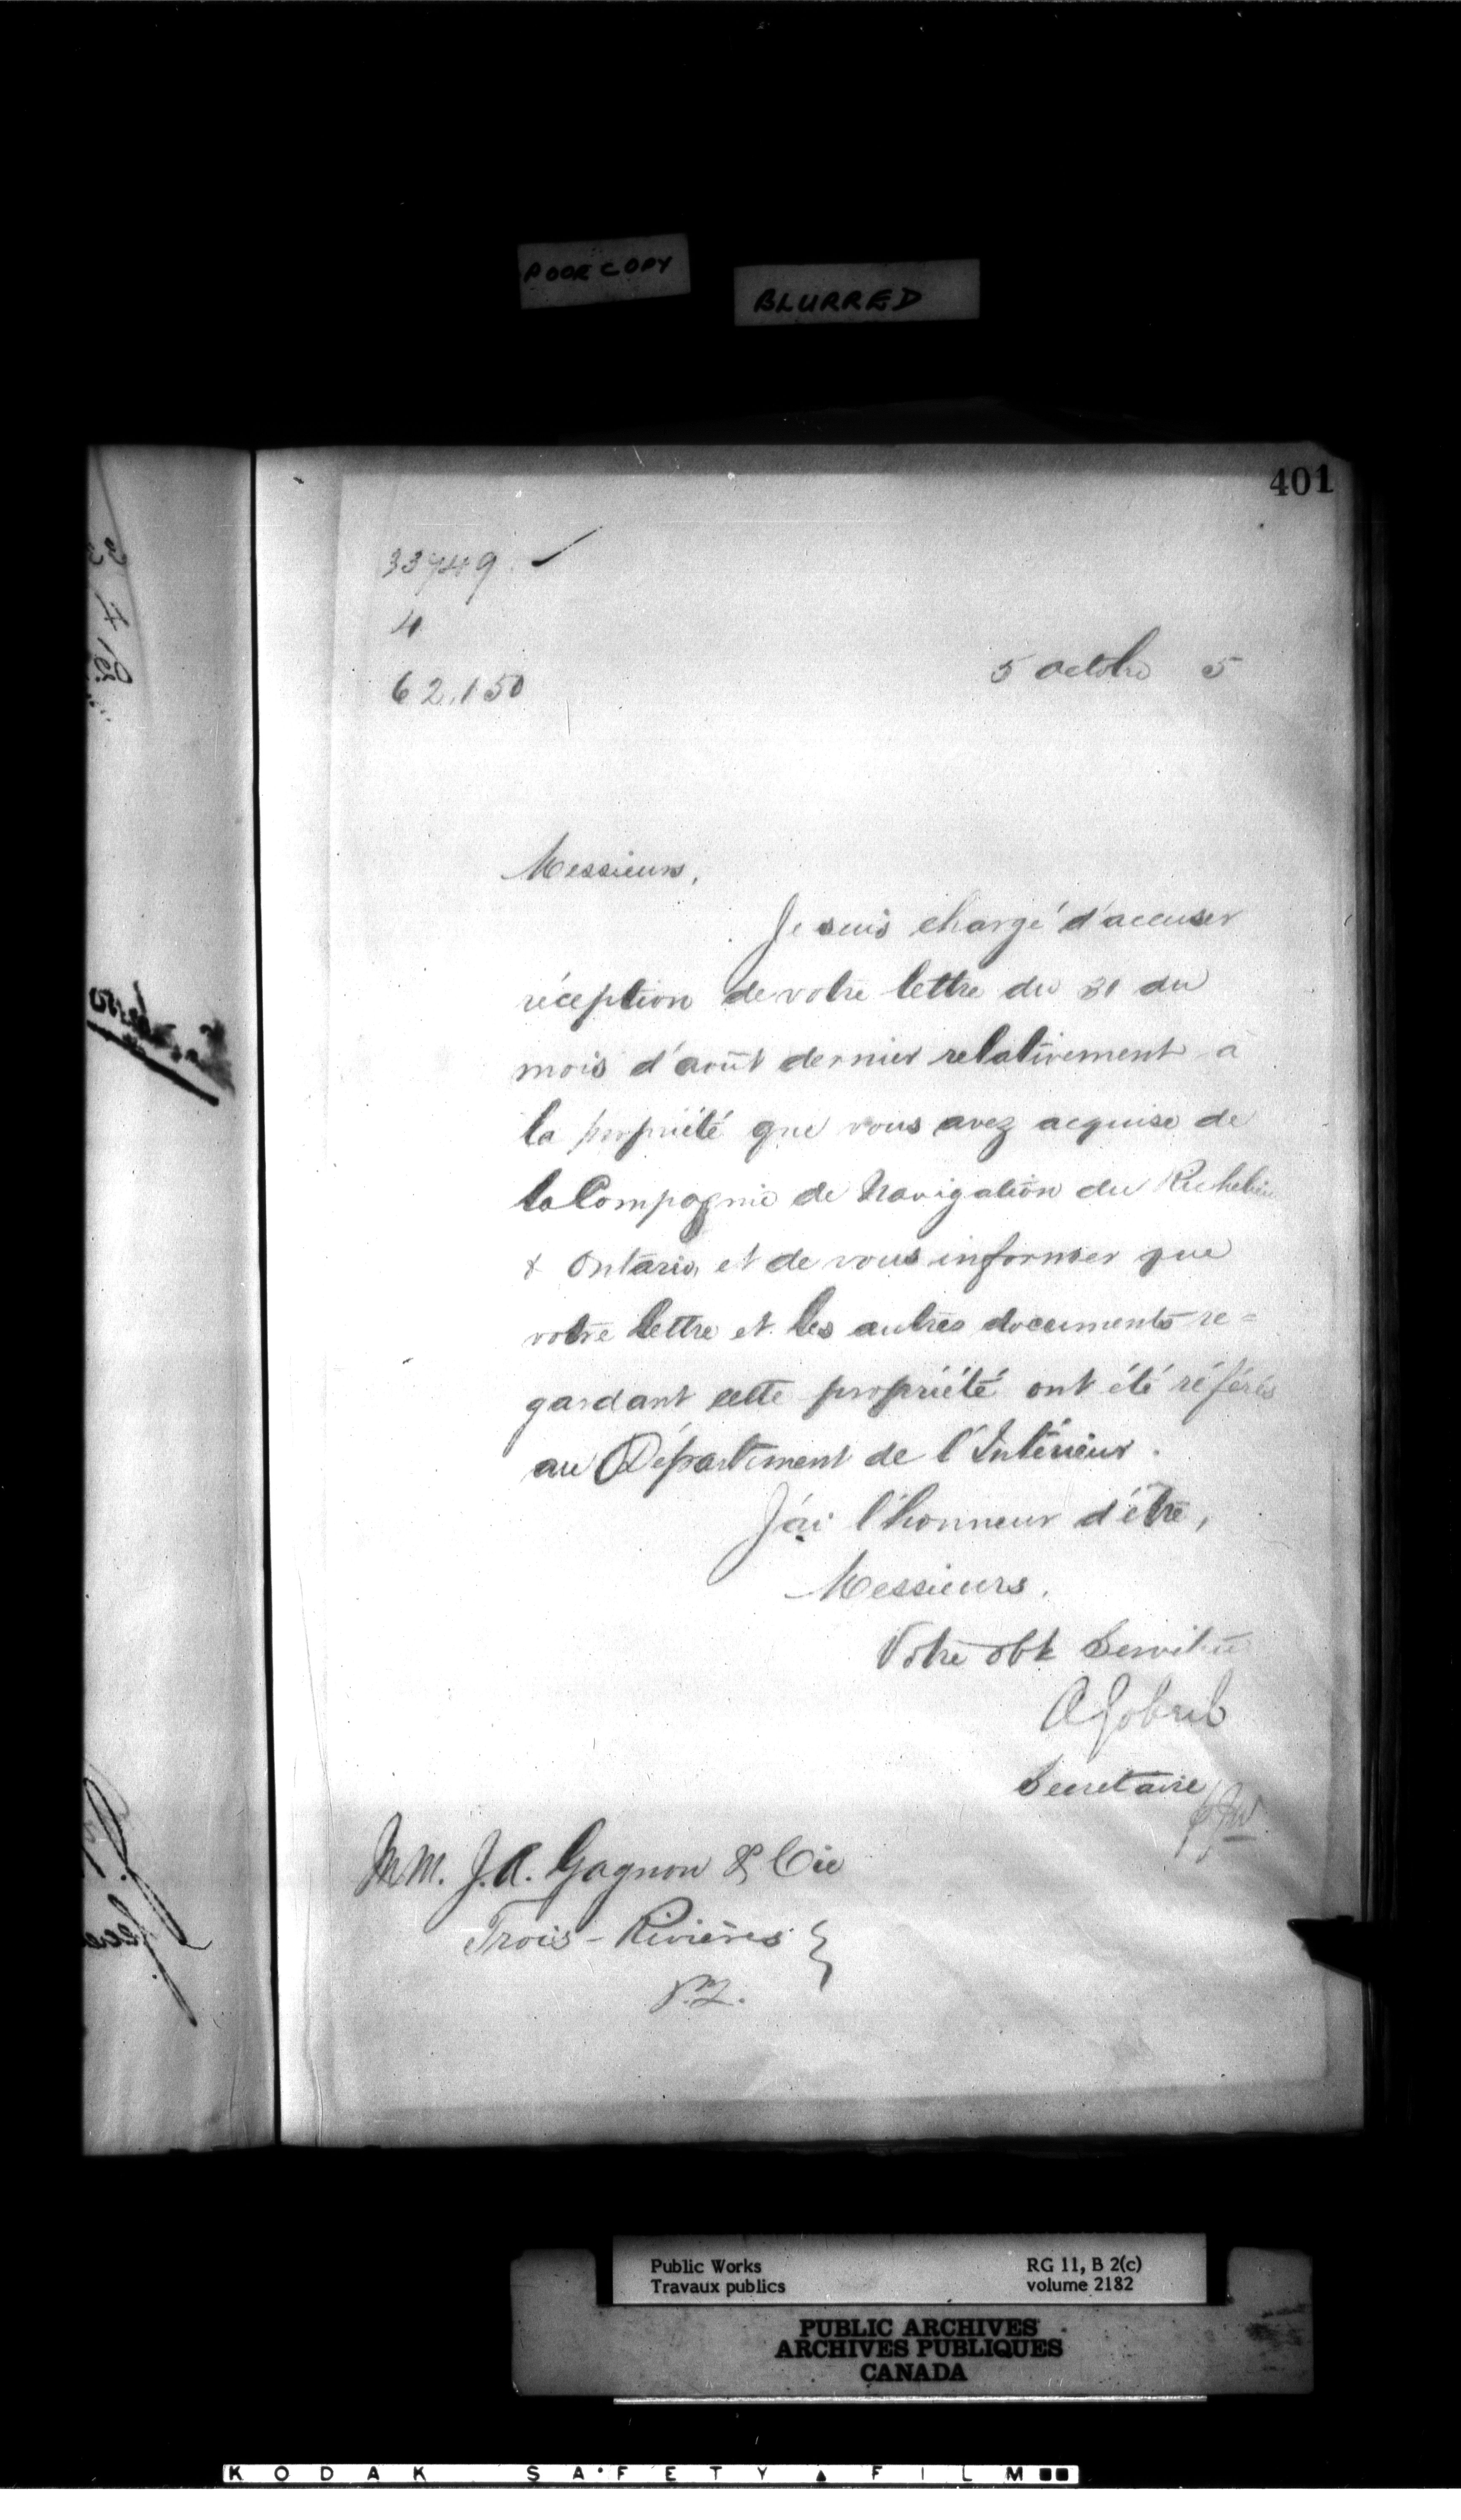 POOR COPY
BLURRED
401
33749
4
62.150
5 Octobre 5
Messieurs,
Je suis chargé d'accuser
réception de votre lettre du 31 du
mois d'août dernier relativement à
la propriété que vous avez acquise de
la Compagnie de Navigation du Richelieu
& Ontario, et de vous informer que
votre lettre et les autres documents re=
gardant cette propriété ont été référés
au Département de l'Intérieur.
J'ai l'honneur d'être,
Messieurs,
Votre obt Serviteur
A Gobeil
Secretaire
MM. J. A. Gagnon & Cie
Trois-Rivières
P.Q.
Public Works
Travaux publics
RG 11, B 2(c)
volume 2182
PUBLIC ARCHIVES
ARCHIVES PUBLIQUES
CANADA
KODAK SAFETY FILM